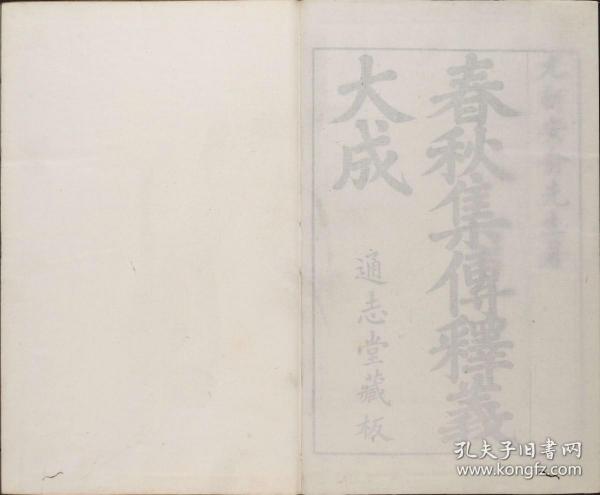 元新安俞先生著
春秋集傳釋義
大成
通志堂藏板
孔夫子旧书网
www.kongfz.com